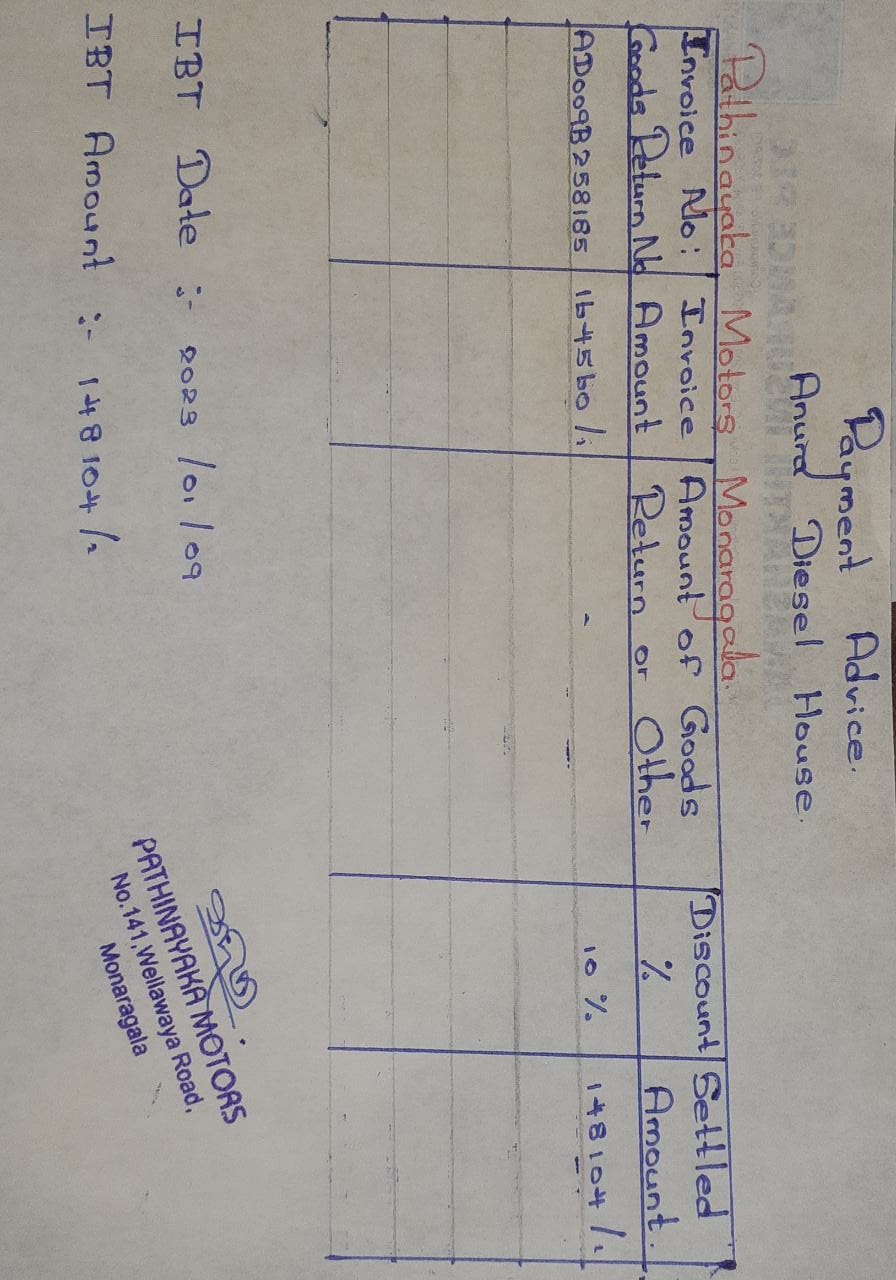 Payment Advice.
Anura Diesel House.
Pathinayaka Motors Monaragala.
Invoice No: Invoice Amount of Goods Discount Settled
Goods Return No Amount Return or Other % Amount.
AD009B258185 164560/: - 10% 148104/:
IBT Date :- 2023/01/09
IBT Amount :- 148104/:
PATHINAYAKA MOTORS
No.141, Wellawaya Road,
Monaragala